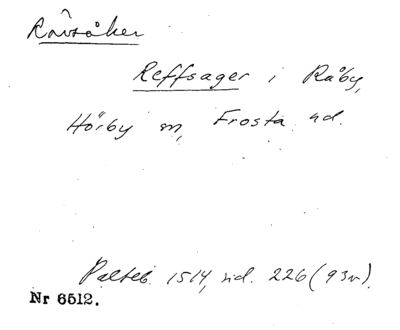 Rävsåker
Reffsager i Råby,
Hörby sn, Frosta hd.
Palteb. 1514, sid. 226 (93v).
Nr 6512.